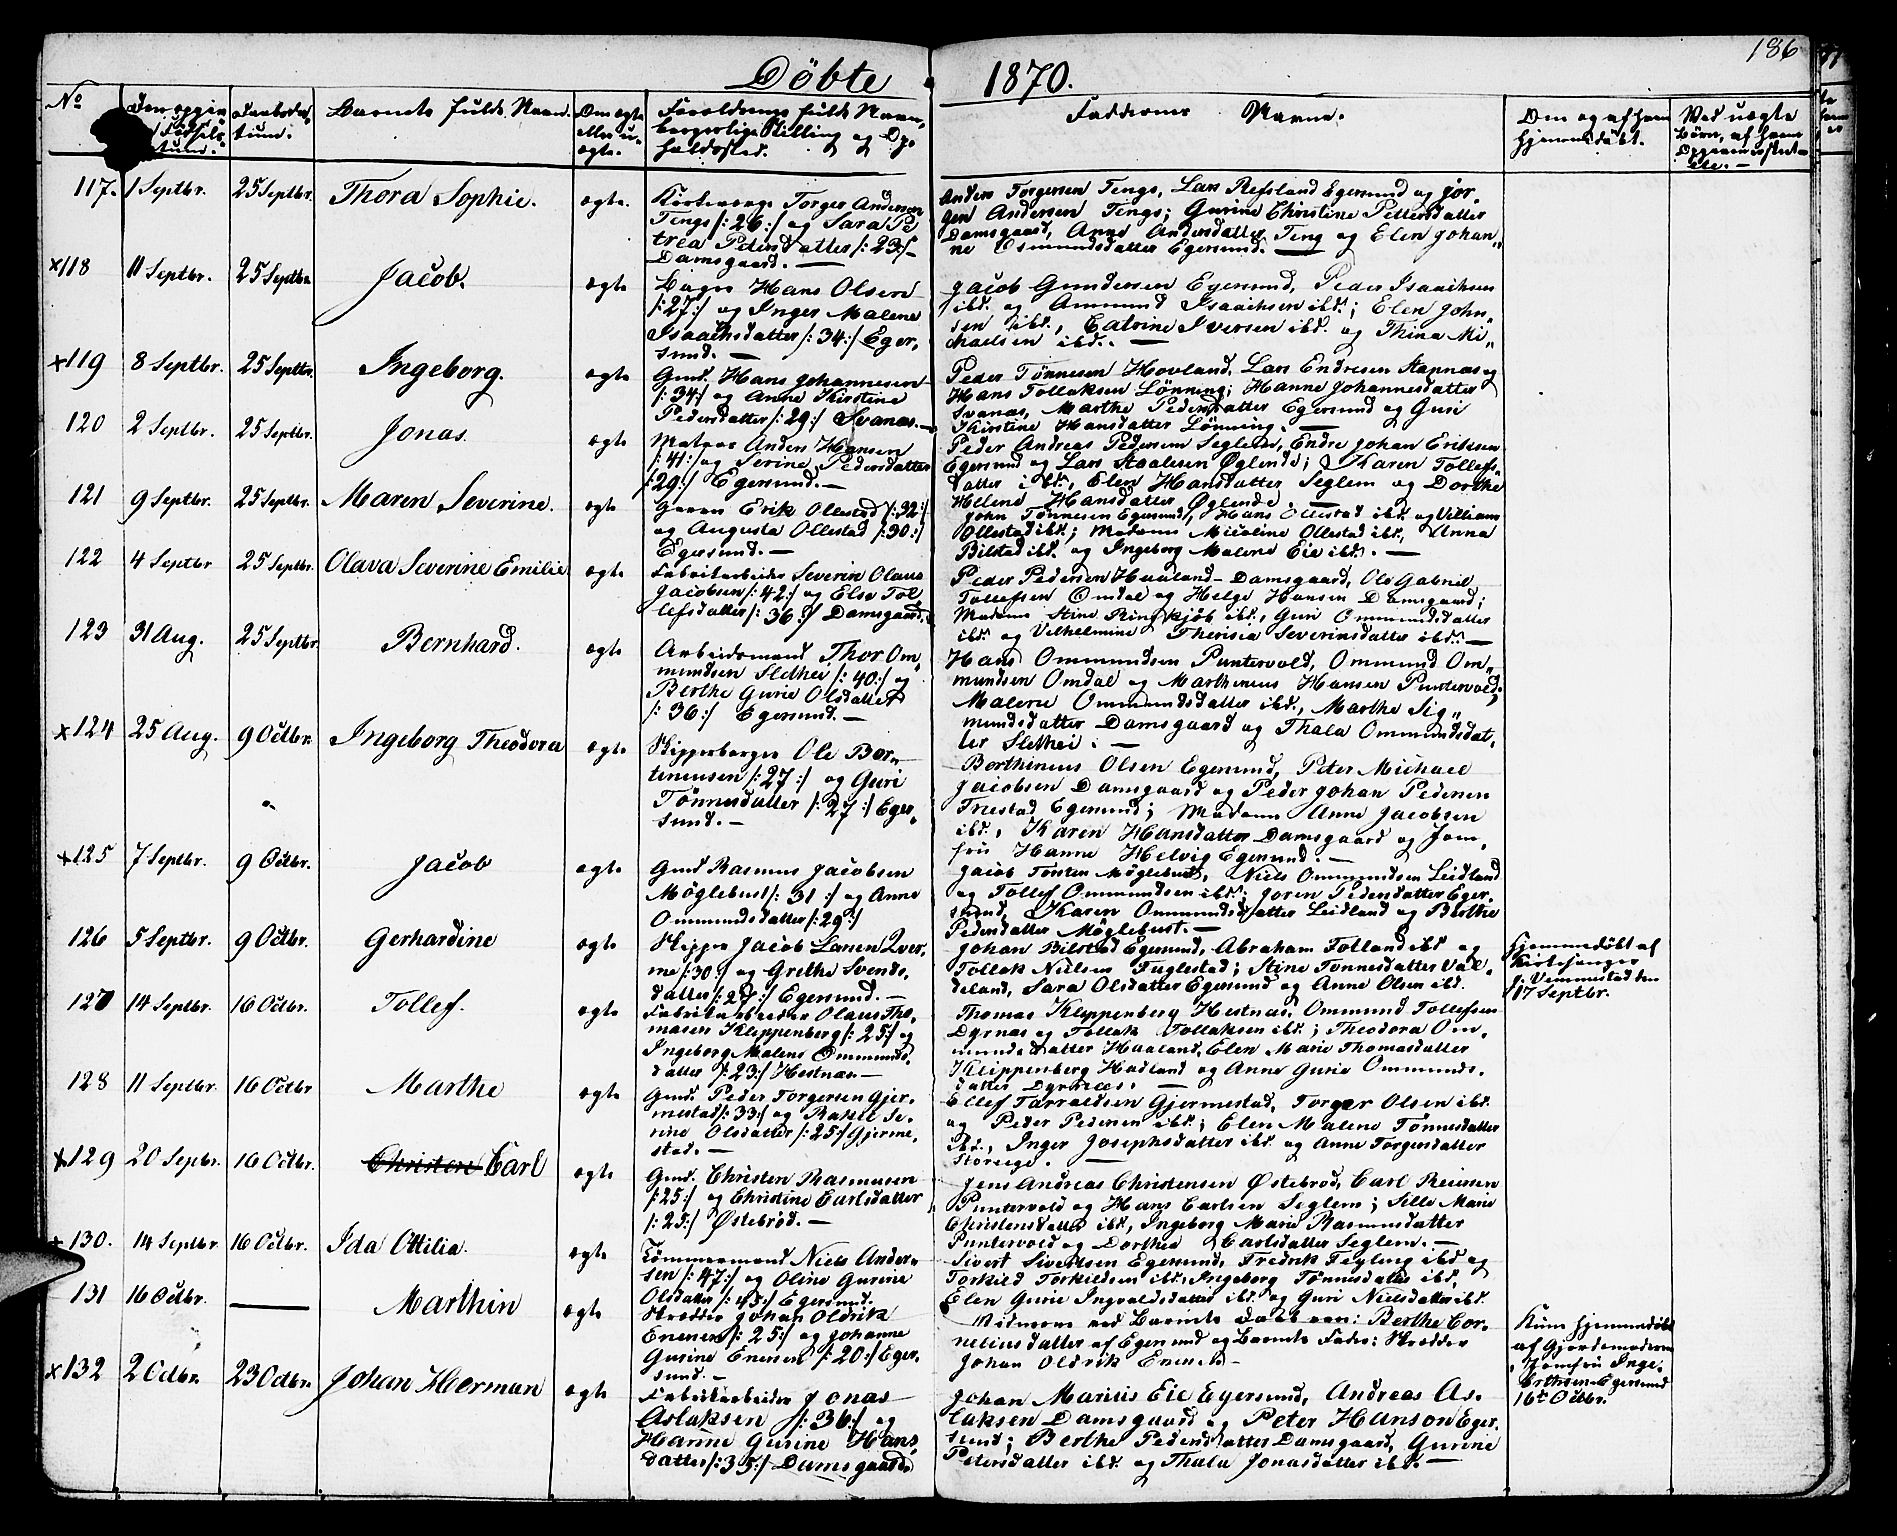 186
Döbte 1870.
No
Den opgivne Fødselstund.
Daabsdatum.
Barnets fulde Navn.
Om ægte eller uægte.
Forældrenes fulde Navn, borgerlige Stilling og Opholdssted.
Faddernes Navne.
Om og af hvem hjemmedøbt.
Ved uægte Børn, af hvem
117. 1 Septbr. 25 Septbr. Thora Sophie. ægte.
Torger Andersen
Tengs /:26:/ og Sara Pe
trea Pedersdatter /:23:/
Damsgaard. —
Anders Torgersen Tengs, Lars Refsland Egersund og Jør-
gen Andersen Tengs; Gurine Christine Pettersdatter
Damsgaard, Anne Andersdatter Teng og Elen Johan-
ne Osmundsdatter Egersund. —
x118 11 Septbr. 25 Septbr Jacob. ægte
Bager Hans Olsen
/:27:/ og Inger Malene
Isaachsdatter /:34:/ Eger-
sund. —
Jacob Gundersen Egersund, Peder Isaachsen
ibd. og Ommund Isaachsen ibd.; Elen John-
sen ibd., Catrine Iversen ibd. og Thina Mi-
chaelsen ibd. —
x119 8 Septbr. 25 Septbr. Ingeborg. ægte
Gmd. Hans Johannesen
/:34:/ og Anne Kirstine
Pedersdatter /:29:/ Svanæs. —
Peder Tønnesen Hovland, Lars Endresen Stapnæs og
Hans Tollaksen Lönning; Hanne Johannesdatter
Svanæs, Marthe Pedersdatter Egersund og Guri
Kirstine Hansdatter Lönning. —
120 2 Septbr. 25 Septbr. Jonas ægte
Matros Anders Hansen
/:41:/ og Serine Pedersdatter
/:29:/ Egersund. —
Peder Andreas Pedersen Seglem, Endre Johan Eriksen
Egersund og Lars Aaalesen Øglende; Karen Tollefs-
datter ibd., Elen Hansdatter Seglem og Dorthe
Helene Hansdatter Øglende. —
121 9 Septbr. 25 Septbr. Maren Severine. ægte
Garver Erik Ollestad /:32:/
og Augusta Ollestad /:30:/
Egersund. —
John Tønnesen Egersund, Hans Ollestad ibd. og Villiam
Ollestad ibd.; Madame Micaline Ollestad ibd., Anna
Bilstad ibd. og Ingeborg Malene Eie ibd. —
122 4 Septbr 25 Septbr. Olava Severine Emilie ægte
Fabrikarbeider Severin Olaus
Jacobsen /:42:/ og Else Tol
lefsdatter /:36:/ Damsgaard.
Peder Pedersen Haaland - Damsgaard, Ole Gabriel
Tollefsen Omdal og Helge Hansen Damsgaard;
Madame Stine Ringkjøb ibd., Guri Ommundsdatter
ibd. og Vilhelmine Therisia Severinsdatter ibd. —
123 31 Aug. 25 Septbr Bernhard. ægte
Arbeidsmand Thor Om-
mundsen Slethei /:40:/ og
Berthe Gurie Olsdatter
/:36:/ Egersund. —
Hans Ommundsen Puntervold, Ommund Om-
mundsen Omdal og Marthinius Hansen Puntervold;
Malene Ommundsdatter ibd., Marthe Sig-
mundsdatter Damsgaard og Thala Ommundsdat-
ter Slethei. —
x124 25 Aug. 9 Octbr. Ingeborg Theodora ægte
Skipperborger Ole Ber-
tinensen /:27:/ og Guri
Tönnesdatter /:27:/ Eger-
sund. —
Berthinius Olsen Egersund, Peter Michael
Jacobsen Damsgaard og Peder Johan Pedersen
Friestad Egersund; Madame Anne Jacobsen
ibd., Karen Hansdatter Damsgaard og Jom-
fru Hanne Helvig Egersund. —
x125 7 Septbr. 9 Octbr. Jacob ægte
Gmd Rasmus Jacobsen
Möglebust /:31:/ og Anne
Ommundsdatter /:29:/
Jacob Torsten Möglebust, Niels Ommundsen Leidland
og Tollef Ommundsen ibd.; Joren Pedersdatter Eger-
sund, Karen Ommundsdatter Leidland og Berthe
Pedersdatter Möglebust. —
126 5 Septbr. 9 Octbr. Gerhardine ægte
Skipper Jacob Larsen Qver-
me /:30:/ og Grethe Svends-
datter /:27:/ Egersund. —
Johan Bilstad Egersund, Abraham Folland ibd og
Tollak Nielsen Fuglestad; Stine Tønnesdatter Val-
deland, Sara Olsdatter Egersund og Anne Olsen ibd.
Hjemmedøbt af
Kirkesanger
J. Vemmestad den
17 Septbr.
127 14 Septbr. 16 Octbr. Tollef. ægte
Fabrikarbeider Olaus Tho-
masen Kleppenberg /:25:/ og
Ingeborg Malene Ommunds-
datter /:23:/ Hestnæs —
Thomas Kleppenberg Hestnæs, Ommund Tollefsen
Dyrnæs og Tollak Tollaksen ibd.; Theodora Om-
mundsdatter Haaland, Elen Marie Thomasdatter
Kleppenberg Hadland og Anne Gurie Ommunds-
datter Dyrnæs. —
128 11 Septbr. 16 Octbr Marthe ægte
Gmd. Peder Torgersen Gjer-
mestad /:33:/ og Rakel Se-
rine Olsdatter /:25:/ Gjerme-
stad. —
Ellef Tarraldsen Gjermestad, Torger Olsen ibd.
og Peder Pedersen ibd.; Elen Malene Tønnesdatter
ibd., Inger Josephsdatter ibd. og Anne Torgersdatter
x129 20 Septbr. 16 Octbr. Christen Carl ægte
Gmd. Christen Rasmusen
/:25:/ og Christine Carlsdatter
/:25:/ Østebrød. —
Jens Andreas Christensen Østebrød, Carl Reiersen
Puntervold og Hans Carlsen Seglem; Sille Marie
Christensdatter ibd, Ingeborg Marie Rasmusdatter
Puntervold og Dorthea Carlsdatter Seglem. —
x 130. 14 Septbr 16 Octbr. Ida Ottilia. ægte
Tömmermand Niels Ander-
sen /:47:/ og Oline Gurine
Olsdatter /:45:/ Egersund.
Sivert Sivertsen Egersund, Fredrik Feyling ibd og
Torkild Torkildsen ibd., Ingeborg Tønnesdatter ibd.,
Elen Gurie Ingvaldsdatter ibd. og Guri Nielsdatter ibd.
131 16 Octbr. — Marthin ægte
Skrædder Johan Oldrik
Enersen /:25:/ og Johanne
Gurine Enersen /:20:/ Eger-
sund. —
Vidnerne ved Barnets Daab var: Berthe Cor-
neliusdatter af Egersund og Barnets Fader: Skrædder
Johan Oldrik Enersen —
Kun hjemmedøbt
af Gjordemoderen
Jomfru Inge-
Egersund
16de Octbr.
x132 2 Octbr. 23 Octbr. Johan Herman ægte
Fabrikarbeider Jonas
Aslaksen /:36:/ og
Hanne Gurine Hans-
datter /:35:/ Damsgaard.
Johan Marius Eie Egersund, Andreas As-
laksen Damsgaard og Peter Hanson Eger-
sund; Berthe Pedersdatter Damsgaard, Gurine
Petersdatter ibd. og Thala Jonasdatter ibd. —